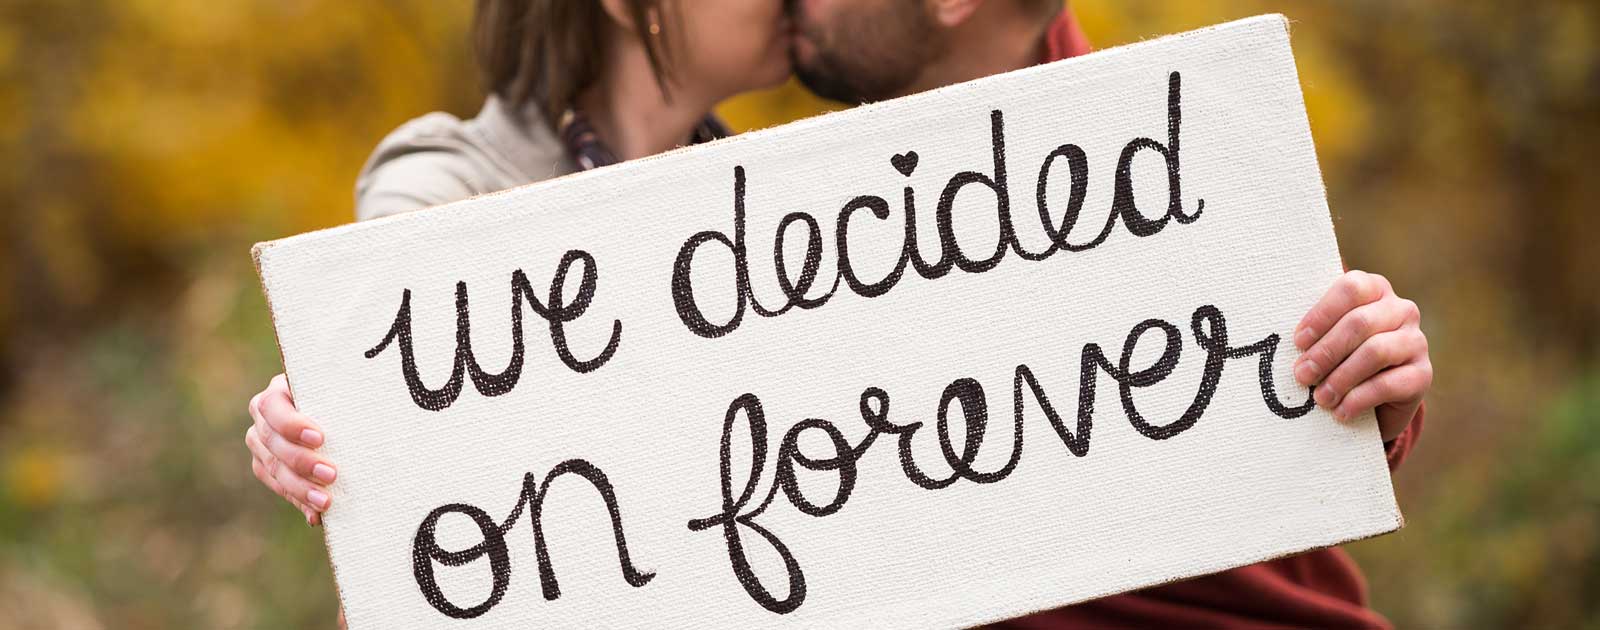 we decided
on forever